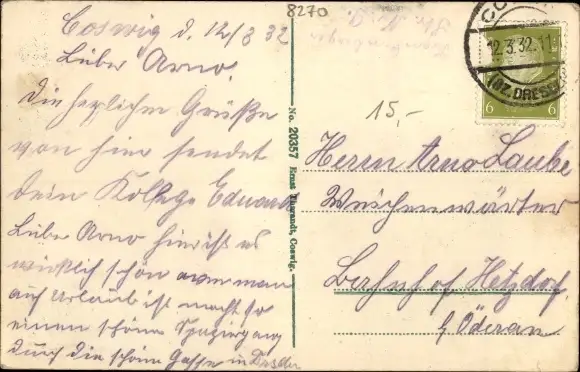 8270
Coswig d. 12/3 32
Lieber Arno!
Die herzlichen Grüße
von hier sendet
Dein Kollege Eduard
Lieber Arno hier ist es
wirklich schön wenn man
auf Urlaub ist macht so
einen schönen Spaziergang
durch die schöne Gasse in Dresden
No. 20357 Ernst Coswig.
12.3.32.11
(BZ. DRESD
6 6
15,-
Herrn Arno Laube
Weichenwärter
Bahnhof Hetzdorf
b/ Öderan